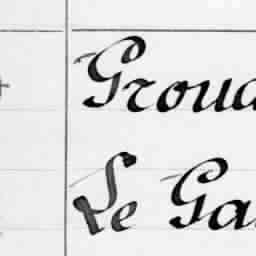 Groua
Le Ga